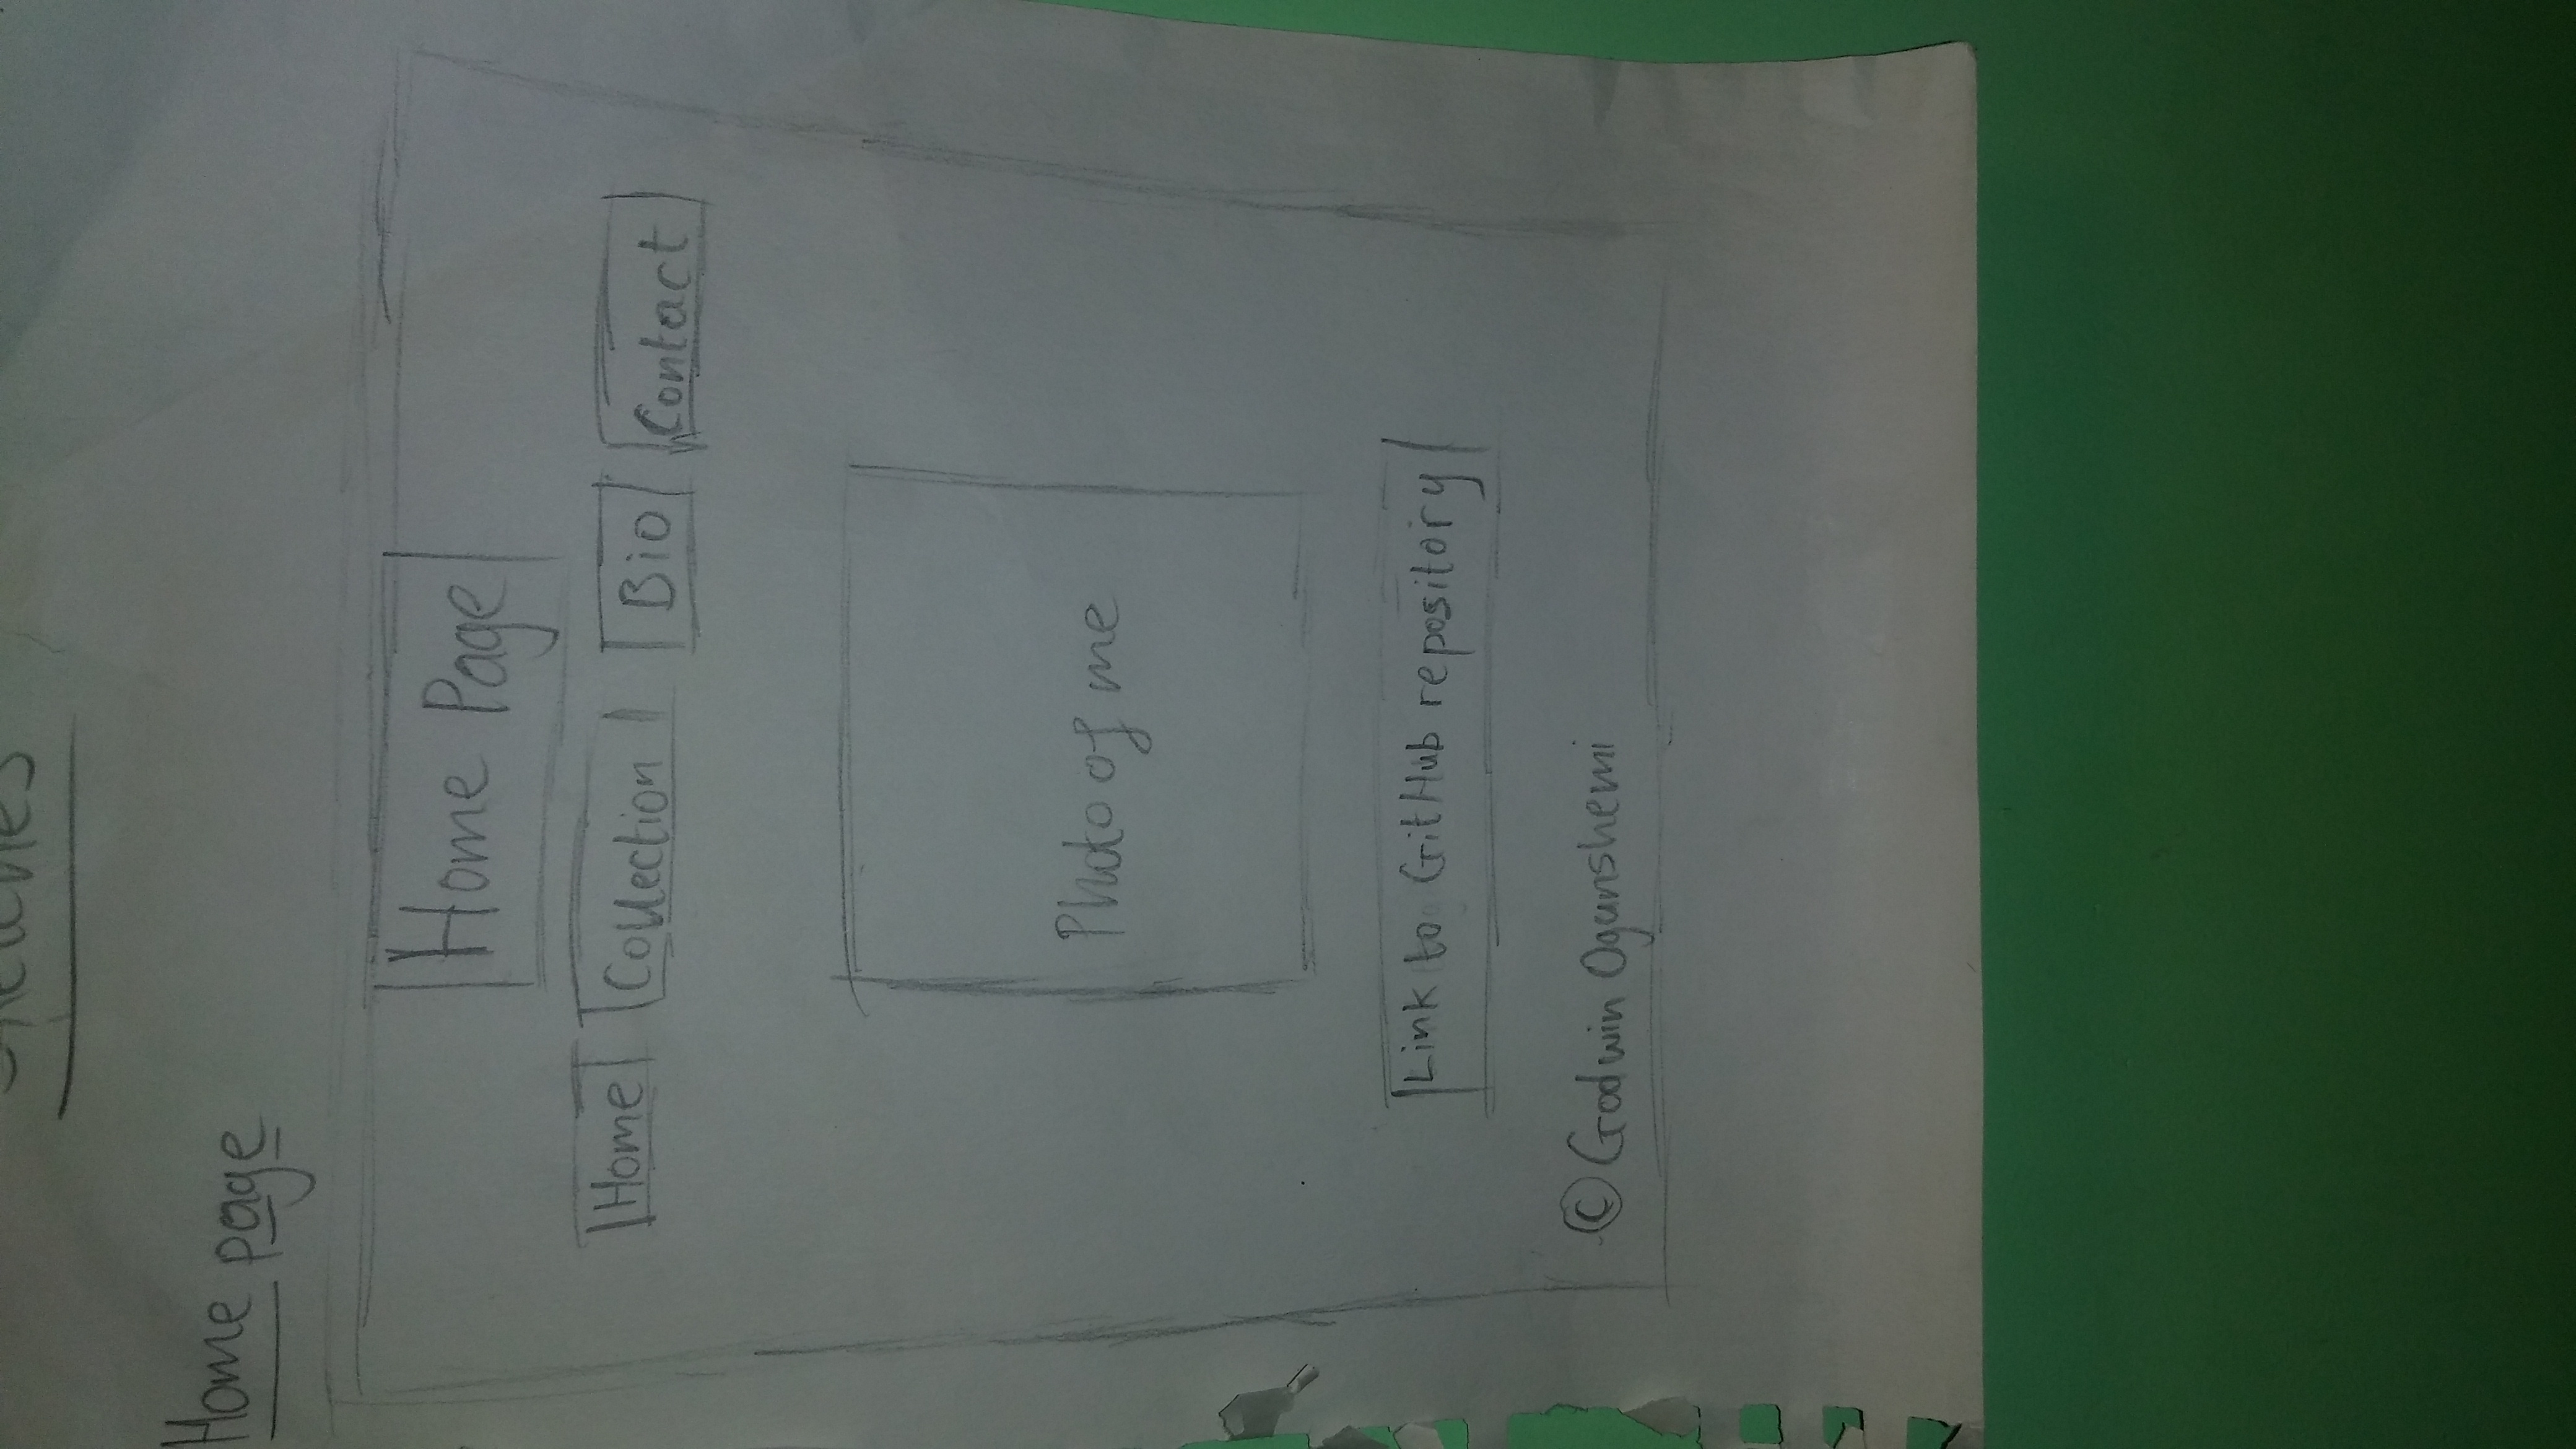 Sketches
Home page
Home Page
Home Collection Bio Contact
Photo of me
Link to GitHub repository
© Godwin Ogunshemi